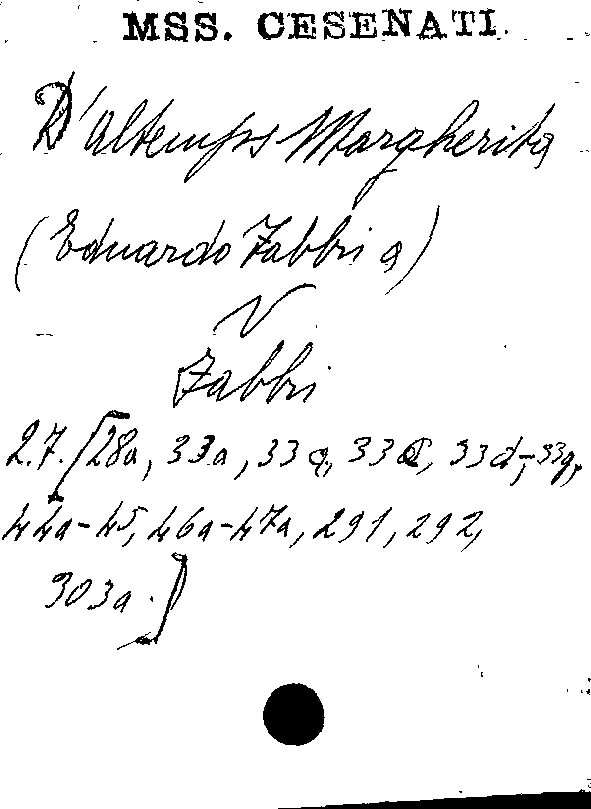 MSS. CESENATI.
D'Altemps Margherita
(Eduardo Fabbri a)
V
Fabbri
2.7. [28a, 33a, 33 c, 33 d-33g,
44a-45, 46a-47a, 291, 292,
303a.]